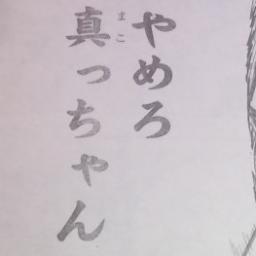 やめろ
真っちゃん
まこ